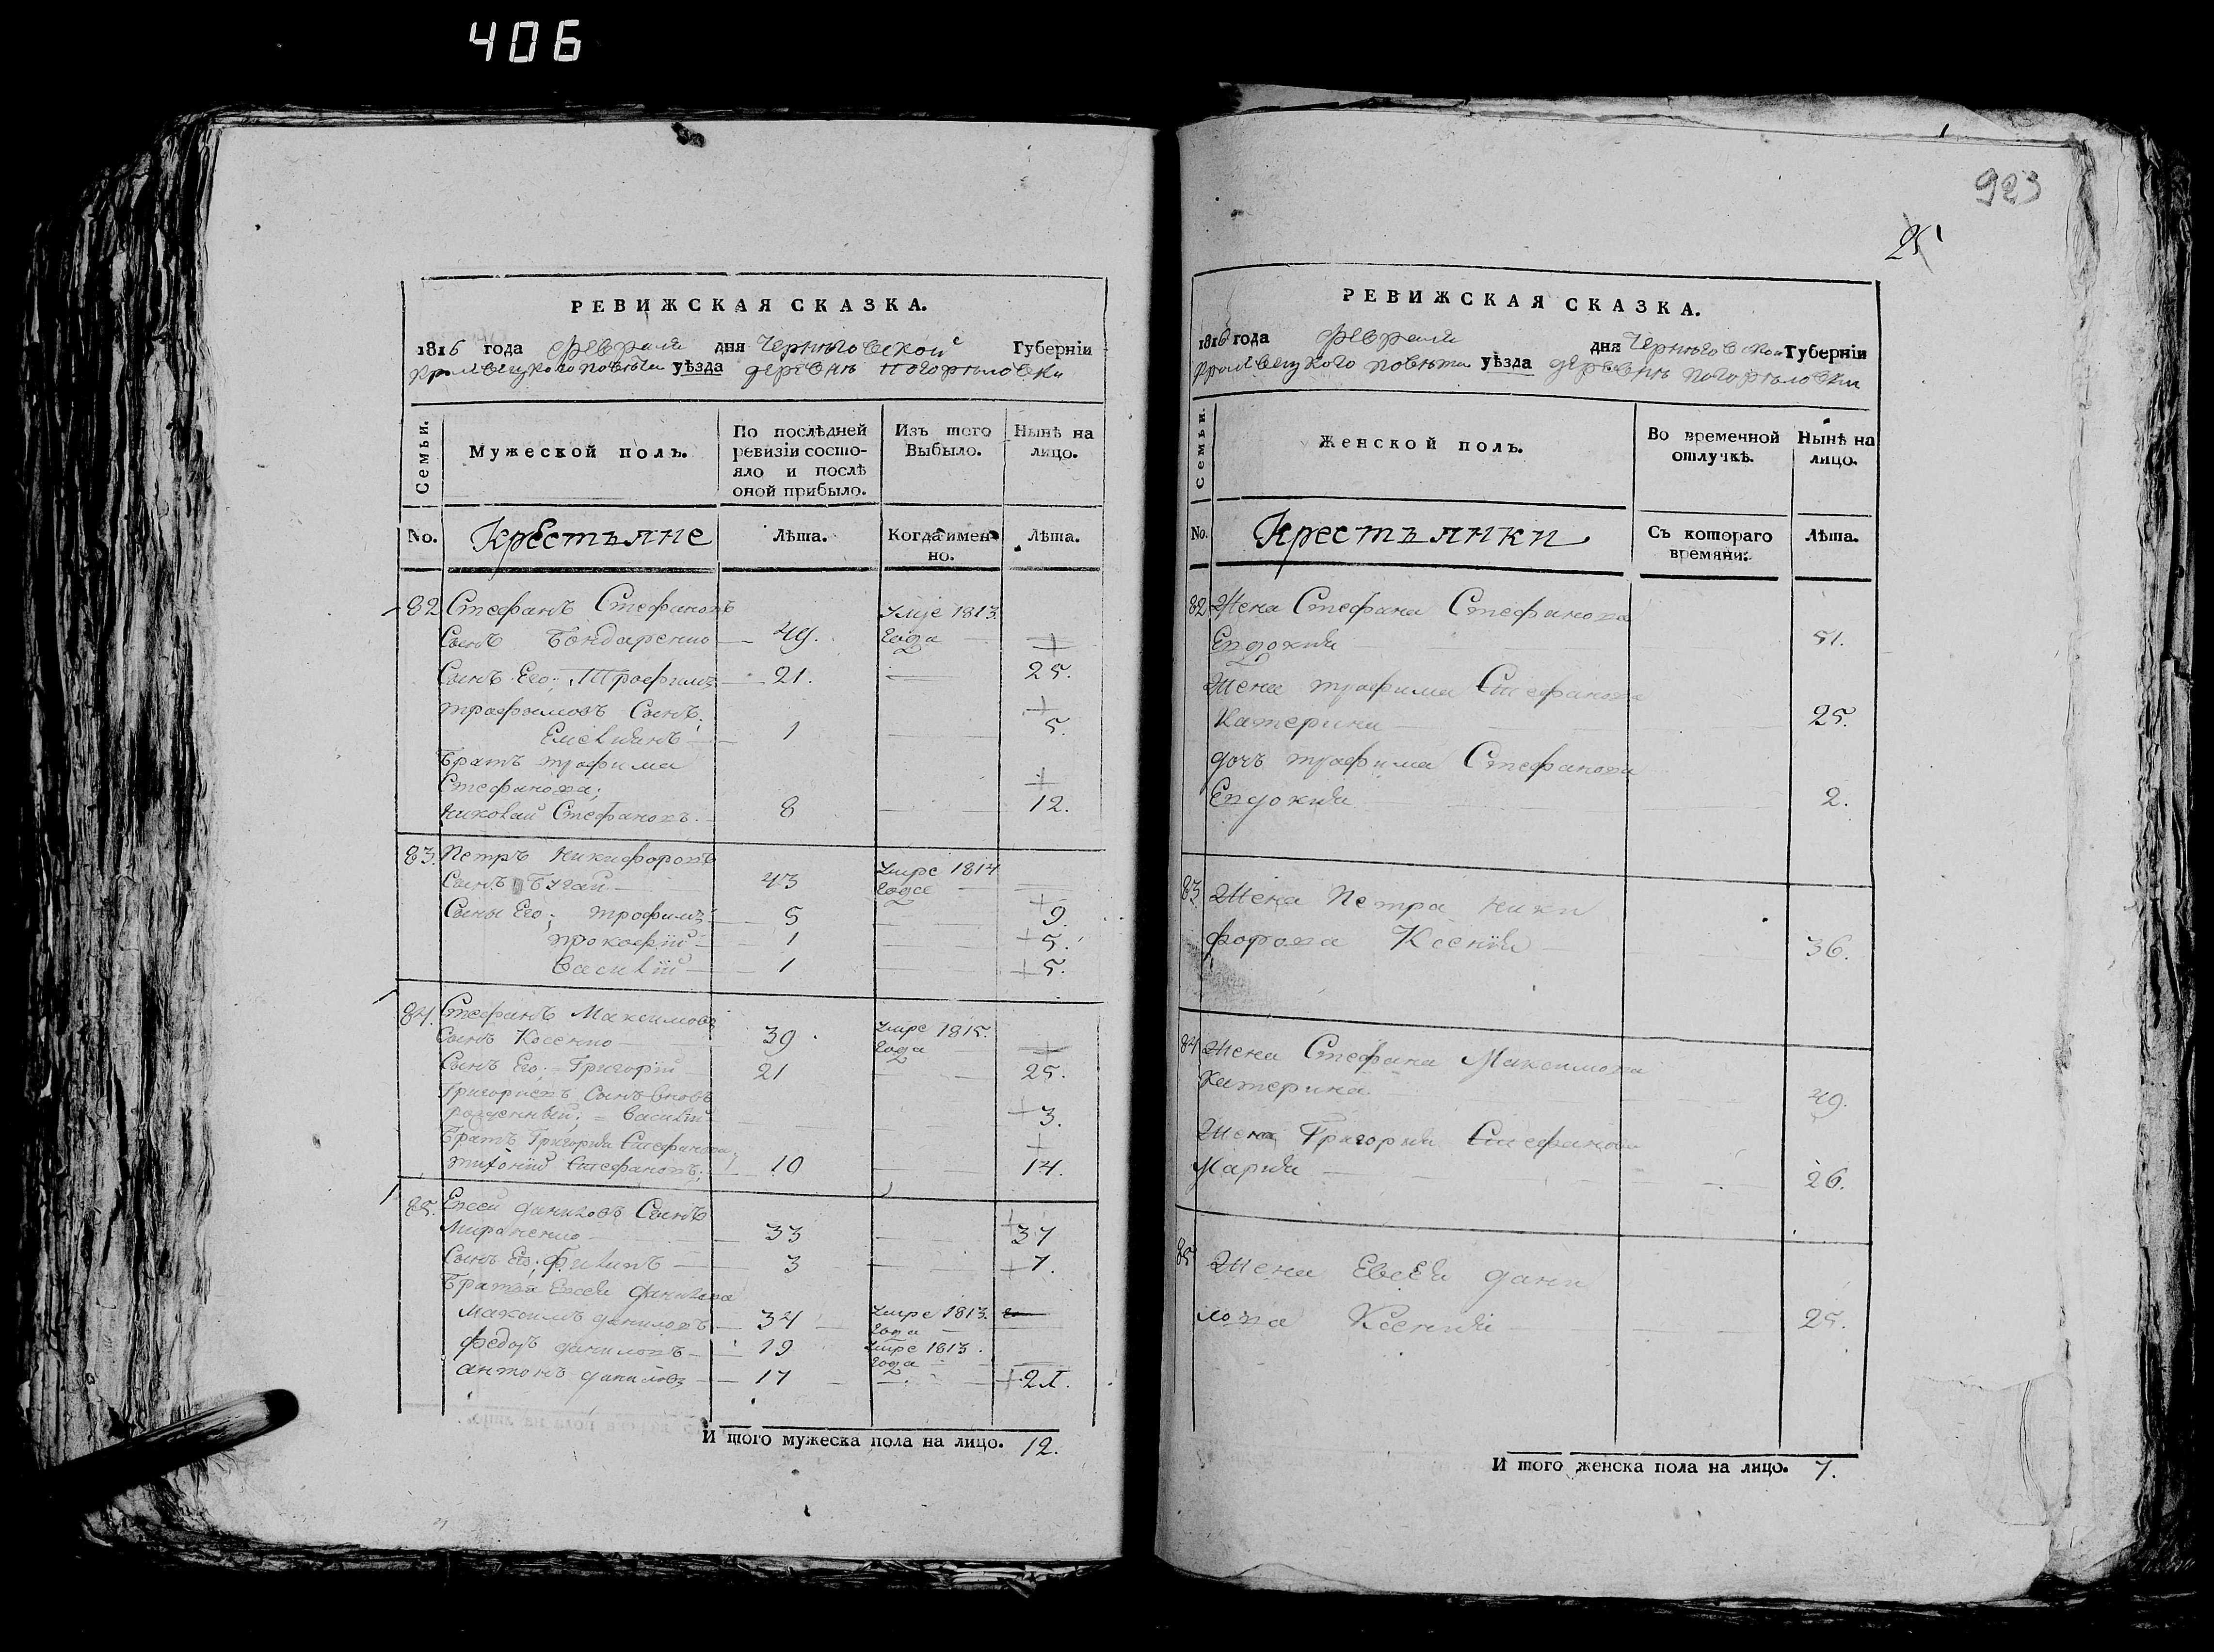 406
РЕВИЖСКАЯ СКАЗКА.
1816 года февраля дня Черниговской Губерніи
Кролевецкого повѣта уѣзда деревнѣ Погорѣловки
Семьи.
Мужеской полъ.
По послѣдней ревизіи состояло и послѣ оной прибыло.
Изъ того Выбыло.
Нынѣ на лицо.
No. Крестьяне Лѣта. Когда именно. Лѣта.
82 Стефанъ Стефановъ умре 1813.
Сынъ Бондаренко 49. года
Сынъ Его; Трофимъ 21. 25.
Трофимовъ Сынъ;
Емельянъ 1 5.
Братъ трофима
Стефанова;
Николай Стефановъ. 8 12.
83. Петръ Никифоровъ умре 1814
Сынъ Бугай 43 года
Сыны Его; трофимъ 5 9.
прокофій 1 5.
Василій 1 5.
84. Стефанъ Максимовъ умре 1815.
Сынъ Косенко 39 года
Сынъ Его; Григорій 21 25.
Григориевъ Сынъ вновь
рожденный; = Василій 3.
Братъ Григорія Стефанова;
Стефановъ; 10 14.
85. Евсей даниловъ Сынъ
33 37
Сынъ Его; Филипъ 3 7.
Братья Евсея данилова
Максимъ даниловъ 34 умре 1813.
года
федоръ даниловъ 19 умре 1813.
года
антонъ даниловъ 17 21.
И того мужеска пола на лицо. 12.
923
25
РЕВИЖСКАЯ СКАЗКА.
1816 года февраля дня Черниговской Губерніи
Кролевецкого повѣта уѣзда деревнѣ погорѣловки
Семьи.
Женской полъ.
Во временной отлучкѣ.
Нынѣ на лицо.
No. Крестьянки Съ котораго времяни. Лѣта.
82 Жена Стефана Стефанова
Евдокия 51.
Жена трофима Стефанова
Катерина 25.
дочь трофима Стефанова
Евдокия 2.
83 Жена Петра Ники
форова Ксения 36.
84 Жена Стефана Максимова
Катерина 49.
Жена Григория Стефанова
Мария 26.
85 Жена Евсея дани
лова Ксения 25.
И того женска пола на лицо. 7.